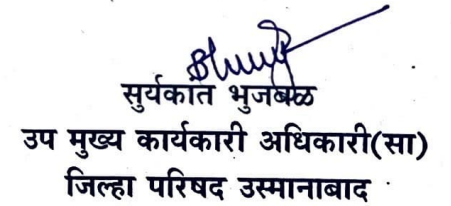 सुर्यकात भुजबळ
उप मुख्य कार्यकारी अधिकारी(सा)
जिल्हा परिषद उस्मानाबाद